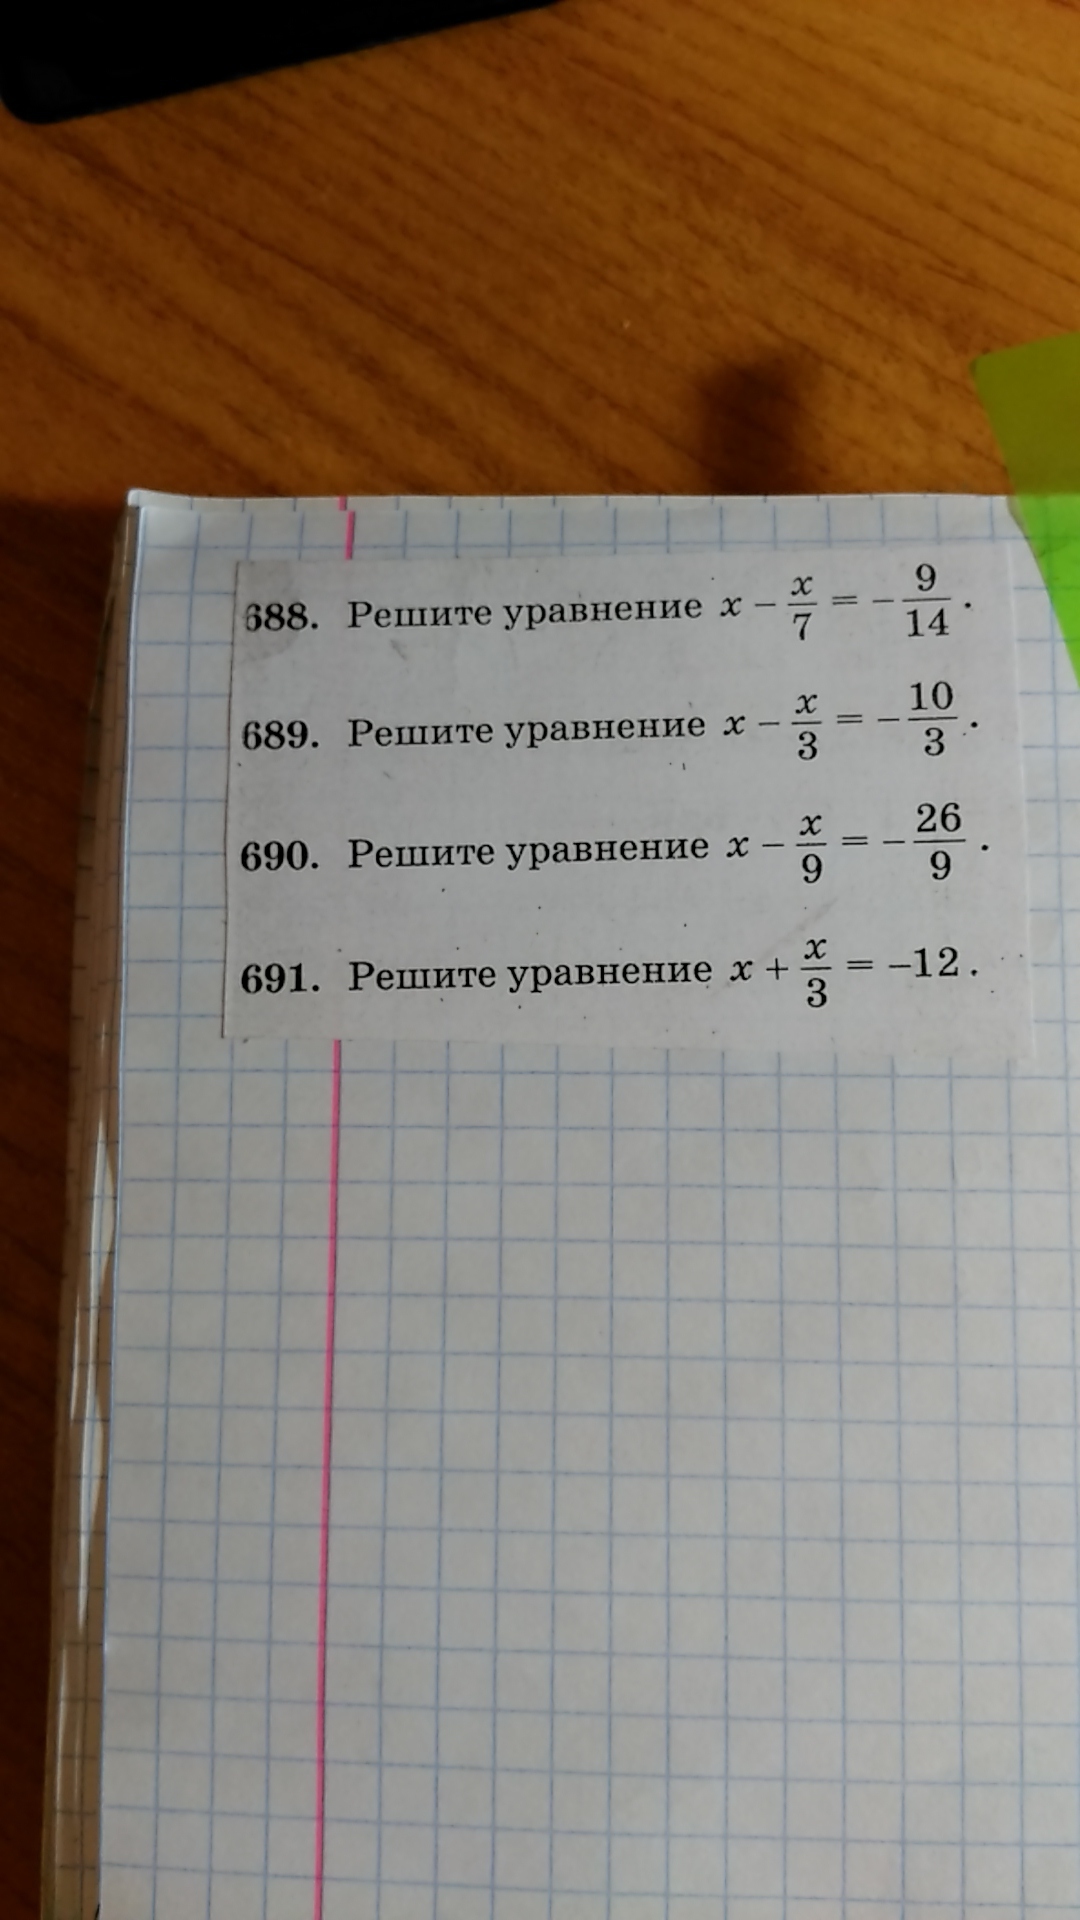 688. Решите уравнение x − x/7 = −9/14.
689. Решите уравнение x − x/3 = −10/3.
690. Решите уравнение x − x/9 = −26/9.
691. Решите уравнение x + x/3 = −12.